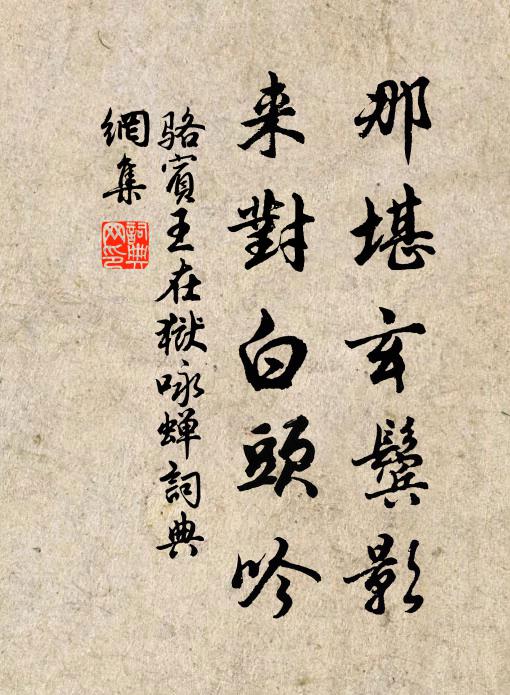 那堪玄鬓影
来對白頭吟
骆賓王在獄咏蝉詞典
網集
詞典
网印